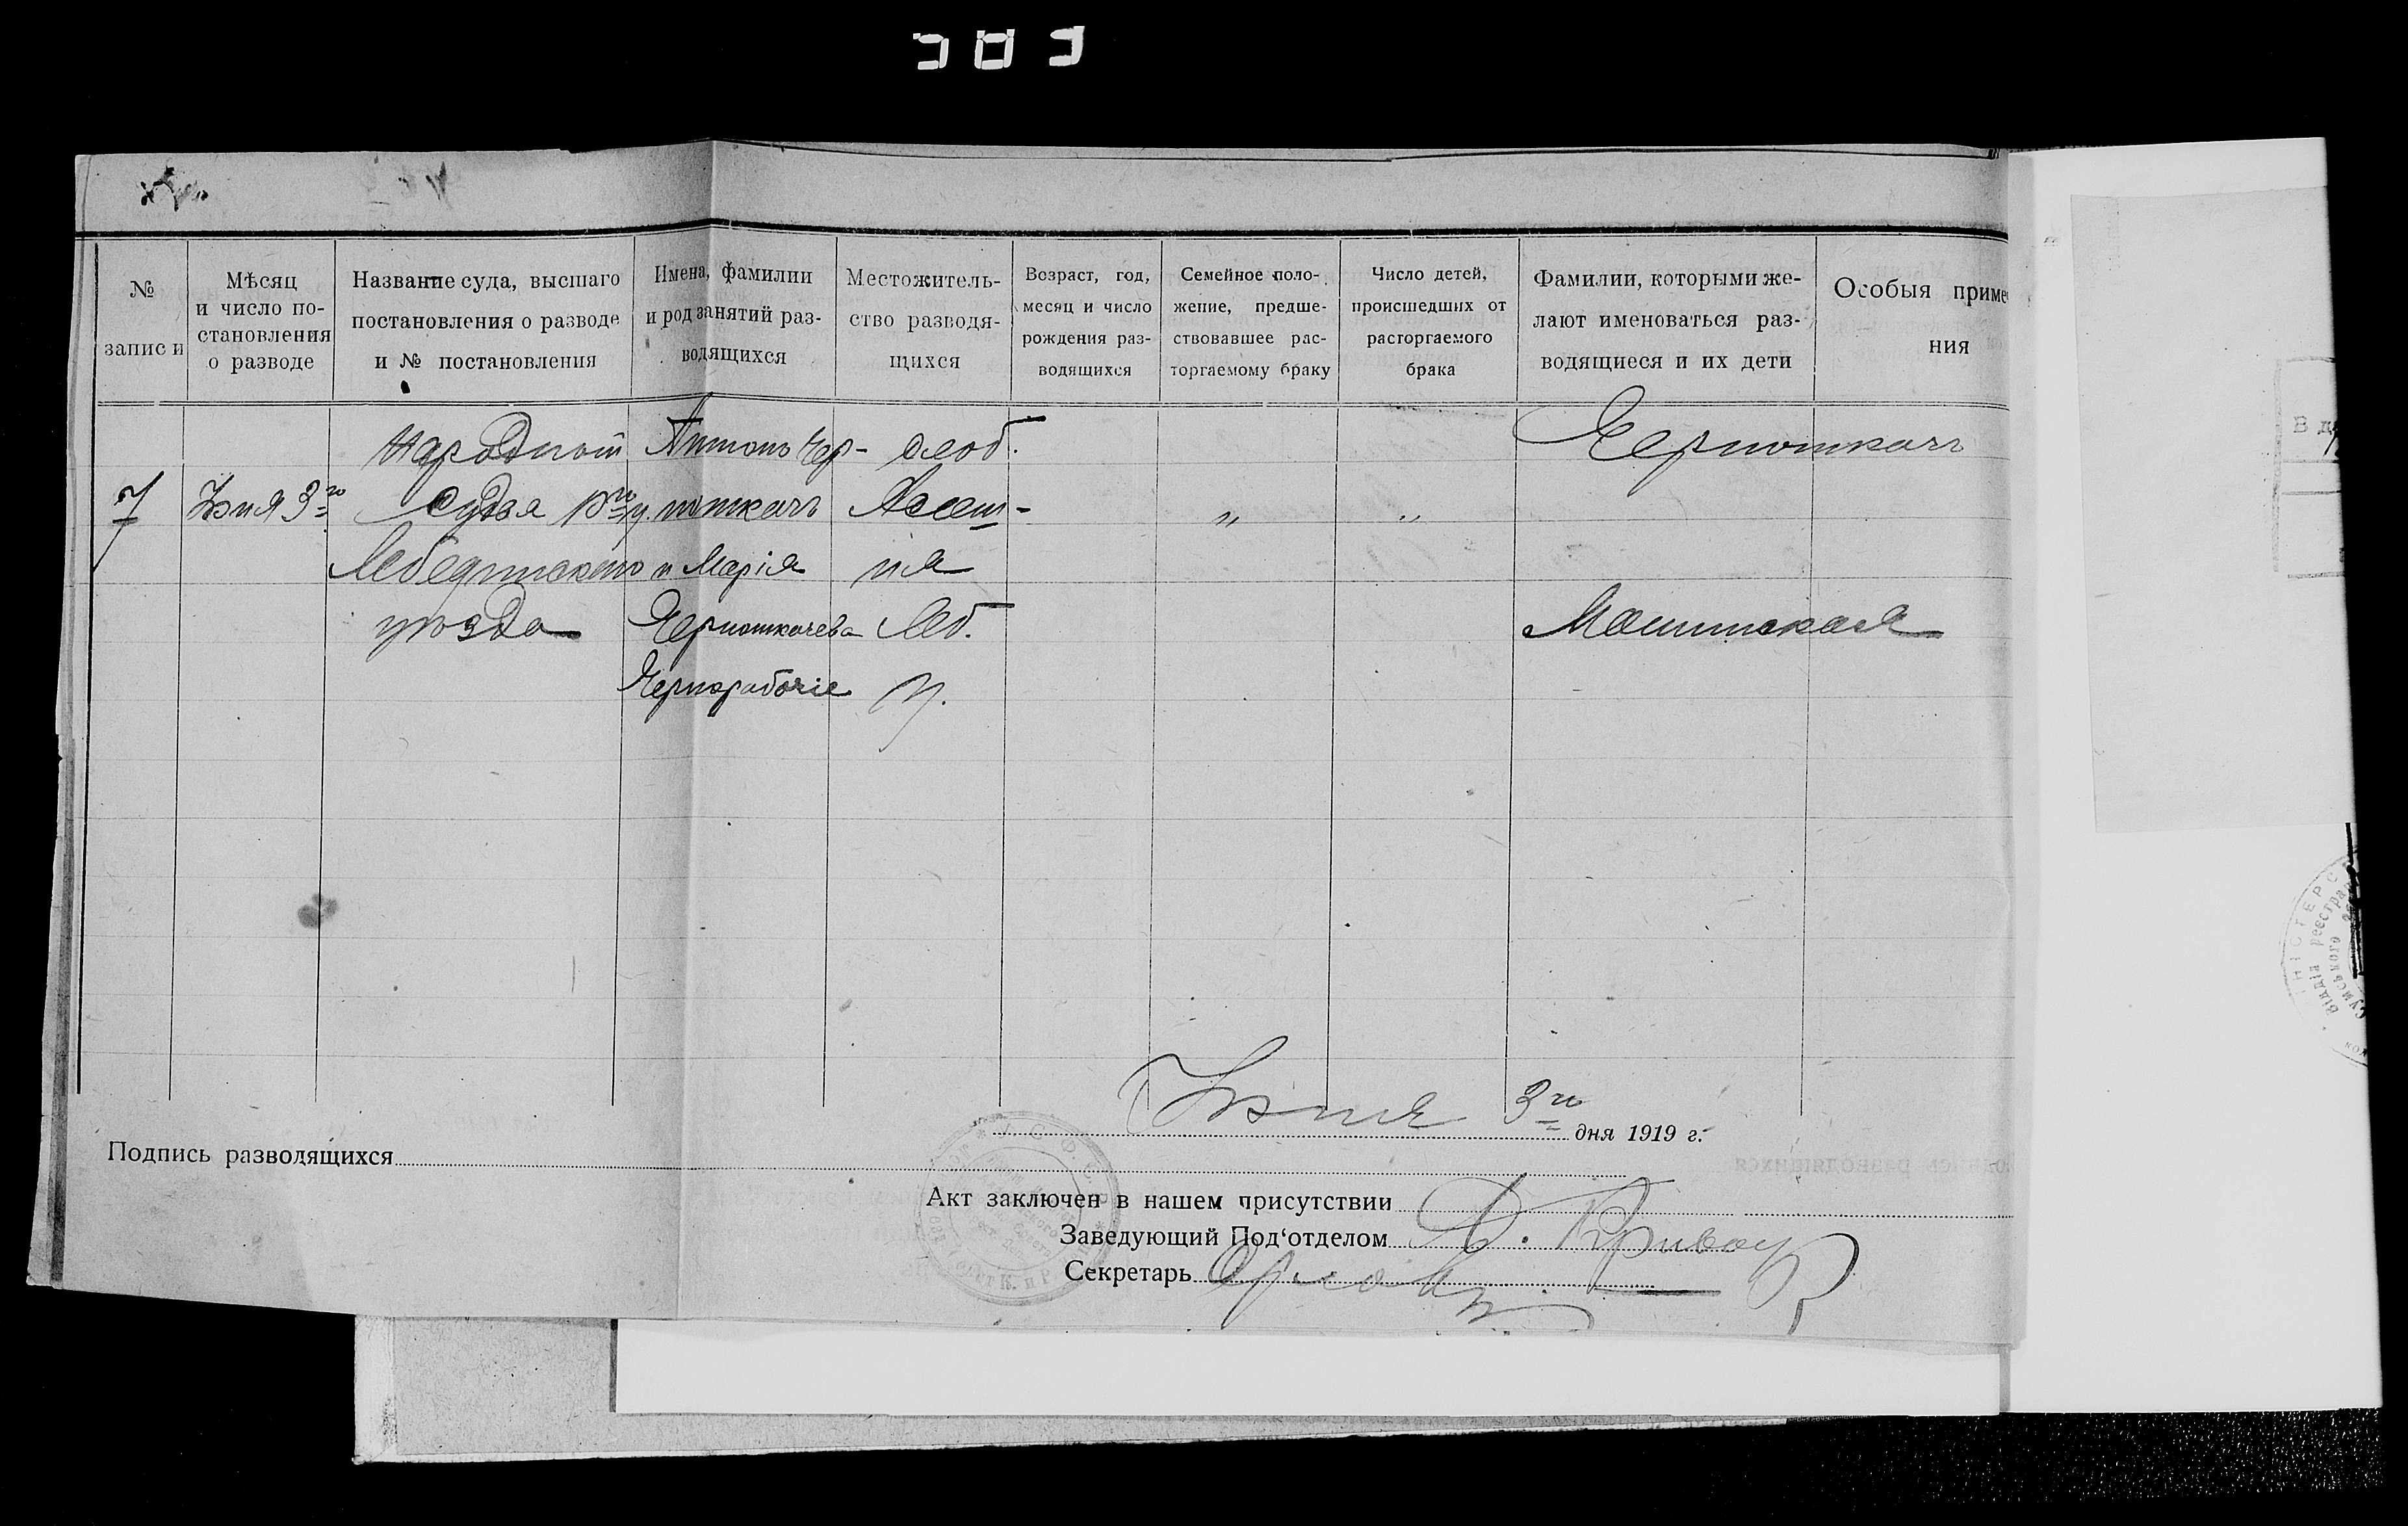 №
записи
Мѣсяц
и число по-
становления
о разводе
Название суда, высшаго
постановления о разводе
и № постановления
Имена, фамилии
и род занятий раз-
водящихся
Местожитель-
ство разводя-
щихся
Возраст, год,
месяц и число
рождения раз-
водящихся
Семейное поло-
жение, предше-
ствовавшее рас-
торгаемому браку
Число детей,
происшедших от
расторгаемого
брака
Фамилии, которыми же-
лают именоваться раз-
водящиеся и их дети
Особыя приме
ния
7
Іюня 3го
Народный
судья
Лебединскаго
уѣзда
Антонъ Чер-
ноткачъ
и Марія
Черноткачева
Чернорабочіе
слоб.
Ассеш-
ня
Леб.
у.
"
"
Черноткачъ
Іюня 3го дня 1919 г.
Подпись разводящихся
Акт заключен в нашем присутствии
Заведующий Под‘отделом
Секретарь